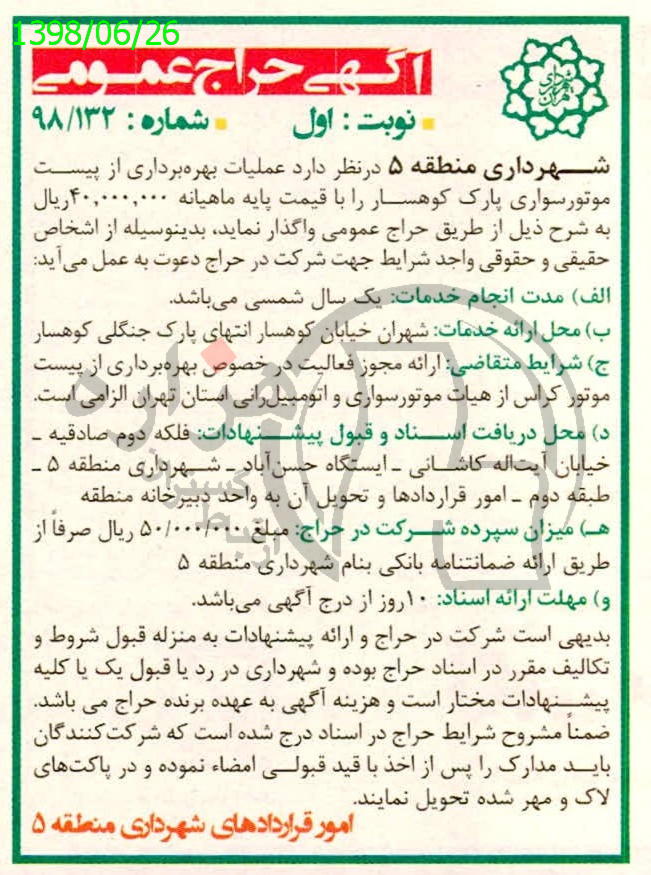 1398/06/26
آگهی حراج عمومی
نوبت : اول
شماره : ۹۸/۱۳۲
شهرداری تهران
شهرداری منطقه ۵ درنظر دارد عملیات بهره‌برداری از پیست
موتورسواری پارک کوهسار را با قیمت پایه ماهیانه ۴۰,۰۰۰,۰۰۰ریال
به شرح ذیل از طریق حراج عمومی واگذار نماید، بدینوسیله از اشخاص
حقیقی و حقوقی واجد شرایط جهت شرکت در حراج دعوت به عمل می‌آید:
الف) مدت انجام خدمات: یک سال شمسی می‌باشد.
ب) محل ارائه خدمات: شهران خیابان کوهسار انتهای پارک جنگلی کوهسار
ج) شرایط متقاضی: ارائه مجوز فعالیت در خصوص بهره‌برداری از پیست
موتور کراس از هیات موتورسواری و اتومبیل‌رانی استان تهران الزامی است.
د) محل دریافت اسناد و قبول پیشنهادات: فلکه دوم صادقیه ـ
خیابان آیت‌اله کاشانی ـ ایستگاه حسن‌آباد ـ شهرداری منطقه ۵ ـ
طبقه دوم ـ امور قراردادها و تحویل آن به واحد دبیرخانه منطقه
هـ) میزان سپرده شرکت در حراج: مبلغ ۵۰/۰۰۰/۰۰۰ ریال صرفاً از
طریق ارائه ضمانتنامه بانکی بنام شهرداری منطقه ۵
و) مهلت ارائه اسناد: ۱۰روز از درج آگهی می‌باشد.
بدیهی است شرکت در حراج و ارائه پیشنهادات به منزله قبول شروط و
تکالیف مقرر در اسناد حراج بوده و شهرداری در رد یا قبول یک یا کلیه
پیشنهادات مختار است و هزینه آگهی به عهده برنده حراج می باشد.
ضمناً مشروح شرایط حراج در اسناد درج شده است که شرکت‌کنندگان
باید مدارک را پس از اخذ با قید قبولی امضاء نموده و در پاکت‌های
لاک و مهر شده تحویل نمایند.
امور قراردادهای شهرداری منطقه ۵
هزاره